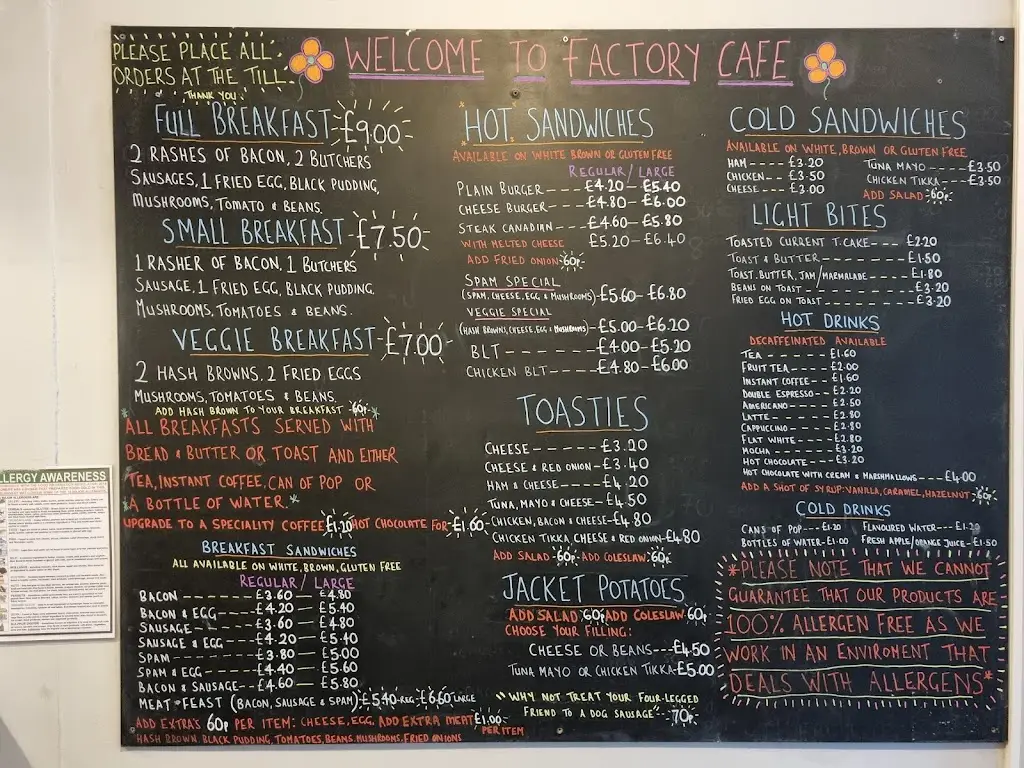 PLEASE PLACE ALL
ORDERS AT THE TILL.
THANK YOU.
WELCOME TO FACTORY CAFE
FULL BREAKFAST £9.00
2 RASHES OF BACON, 2 BUTCHERS
SAUSAGES, 1 FRIED EGG, BLACK PUDDING,
MUSHROOMS, TOMATO & BEANS.
SMALL BREAKFAST £7.50
1 RASHER OF BACON, 1 BUTCHERS
SAUSAGE, 1 FRIED EGG, BLACK PUDDING.
MUSHROOMS, TOMATOES & BEANS.
VEGGIE BREAKFAST £7.00
2 HASH BROWNS, 2 FRIED EGGS
MUSHROOMS, TOMATOES & BEANS.
ADD HASH BROWN TO YOUR BREAKFAST 60p
*ALL BREAKFASTS SERVED WITH
BREAD & BUTTER OR TOAST AND EITHER
TEA, INSTANT COFFEE, CAN OF POP OR
A BOTTLE OF WATER.*
UPGRADE TO A SPECIALITY COFFEE £1.20 HOT CHOCOLATE FOR £1.60
BREAKFAST SANDWICHES
ALL AVAILABLE ON WHITE, BROWN, GLUTEN FREE
REGULAR / LARGE
BACON £3.60 — £4.80
BACON & EGG £4.20 — £5.40
SAUSAGE £3.60 — £4.80
SAUSAGE & EGG £4.20 — £5.40
SPAM £3.80 — £5.00
SPAM & EGG £4.40 — £5.60
BACON & SAUSAGE £4.60 — £5.80
MEAT-FEAST (BACON, SAUSAGE & SPAM) £5.40 REG £6.60 LARGE
ADD EXTRA'S 60p PER ITEM: CHEESE, EGG, ADD EXTRA MEAT £1.00 PER ITEM
HASH BROWN, BLACK PUDDING, TOMATOES, BEANS, MUSHROOMS, FRIED ONIONS
HOT SANDWICHES
AVAILABLE ON WHITE BROWN OR GLUTEN FREE
REGULAR / LARGE
PLAIN BURGER £4.20 - £5.40
CHEESE BURGER £4.80 - £6.00
STEAK CANADIAN £4.60 - £5.80
WITH MELTED CHEESE £5.20 - £6.40
ADD FRIED ONION 60p
SPAM SPECIAL
(SPAM, CHEESE, EGG & MUSHROOMS) £5.60 - £6.80
VEGGIE SPECIAL
(HASH BROWNS, CHEESE, EGG & MUSHROOMS) £5.00 - £6.20
BLT £4.00 - £5.20
CHICKEN BLT £4.80 - £6.00
TOASTIES
CHEESE £3.20
CHEESE & RED ONION £3.40
HAM & CHEESE £4.20
TUNA, MAYO & CHEESE £4.50
CHICKEN, BACON & CHEESE £4.80
CHICKEN TIKKA, CHEESE & RED ONION £4.80
ADD SALAD 60p ADD COLESLAW 60p
JACKET POTATOES
ADD SALAD 60p ADD COLESLAW 60p
CHOOSE YOUR FILLING:
CHEESE OR BEANS £4.50
TUNA MAYO OR CHICKEN TIKKA £5.00
"WHY NOT TREAT YOUR FOUR-LEGGED
FRIEND TO A DOG SAUSAGE" 70p
COLD SANDWICHES
AVAILABLE ON WHITE, BROWN OR GLUTEN FREE
HAM £3.20
CHICKEN £3.50
CHEESE £3.00
TUNA MAYO £3.50
CHICKEN TIKKA £3.50
ADD SALAD 60p
LIGHT BITES
TOASTED CURRENT T.CAKE £2.20
TOAST & BUTTER £1.50
TOAST, BUTTER, JAM/MARMALADE £1.80
BEANS ON TOAST £3.20
FRIED EGG ON TOAST £3.20
HOT DRINKS
DECAFFEINATED AVAILABLE
TEA £1.60
FRUIT TEA £2.00
INSTANT COFFEE £1.60
DOUBLE ESPRESSO £2.20
AMERICANO £2.50
LATTE £2.80
CAPPUCCINO £2.80
FLAT WHITE £2.80
MOCHA £3.20
HOT CHOCOLATE £3.20
HOT CHOCOLATE WITH CREAM & MARSHMALLOWS £4.00
ADD A SHOT OF SYRUP: VANILA, CARAMEL, HAZELNUT 60p
COLD DRINKS
CANS OF POP £1.20 FLAVOURED WATER £1.20
BOTTLES OF WATER £1.00 FRESH APPLE/ORANGE JUICE £1.50
*PLEASE NOTE THAT WE CANNOT
GUARANTEE THAT OUR PRODUCTS ARE
100% ALLERGEN FREE AS WE
WORK IN AN ENVIROMENT THAT
DEALS WITH ALLERGENS*
LLERGY AWARENESS